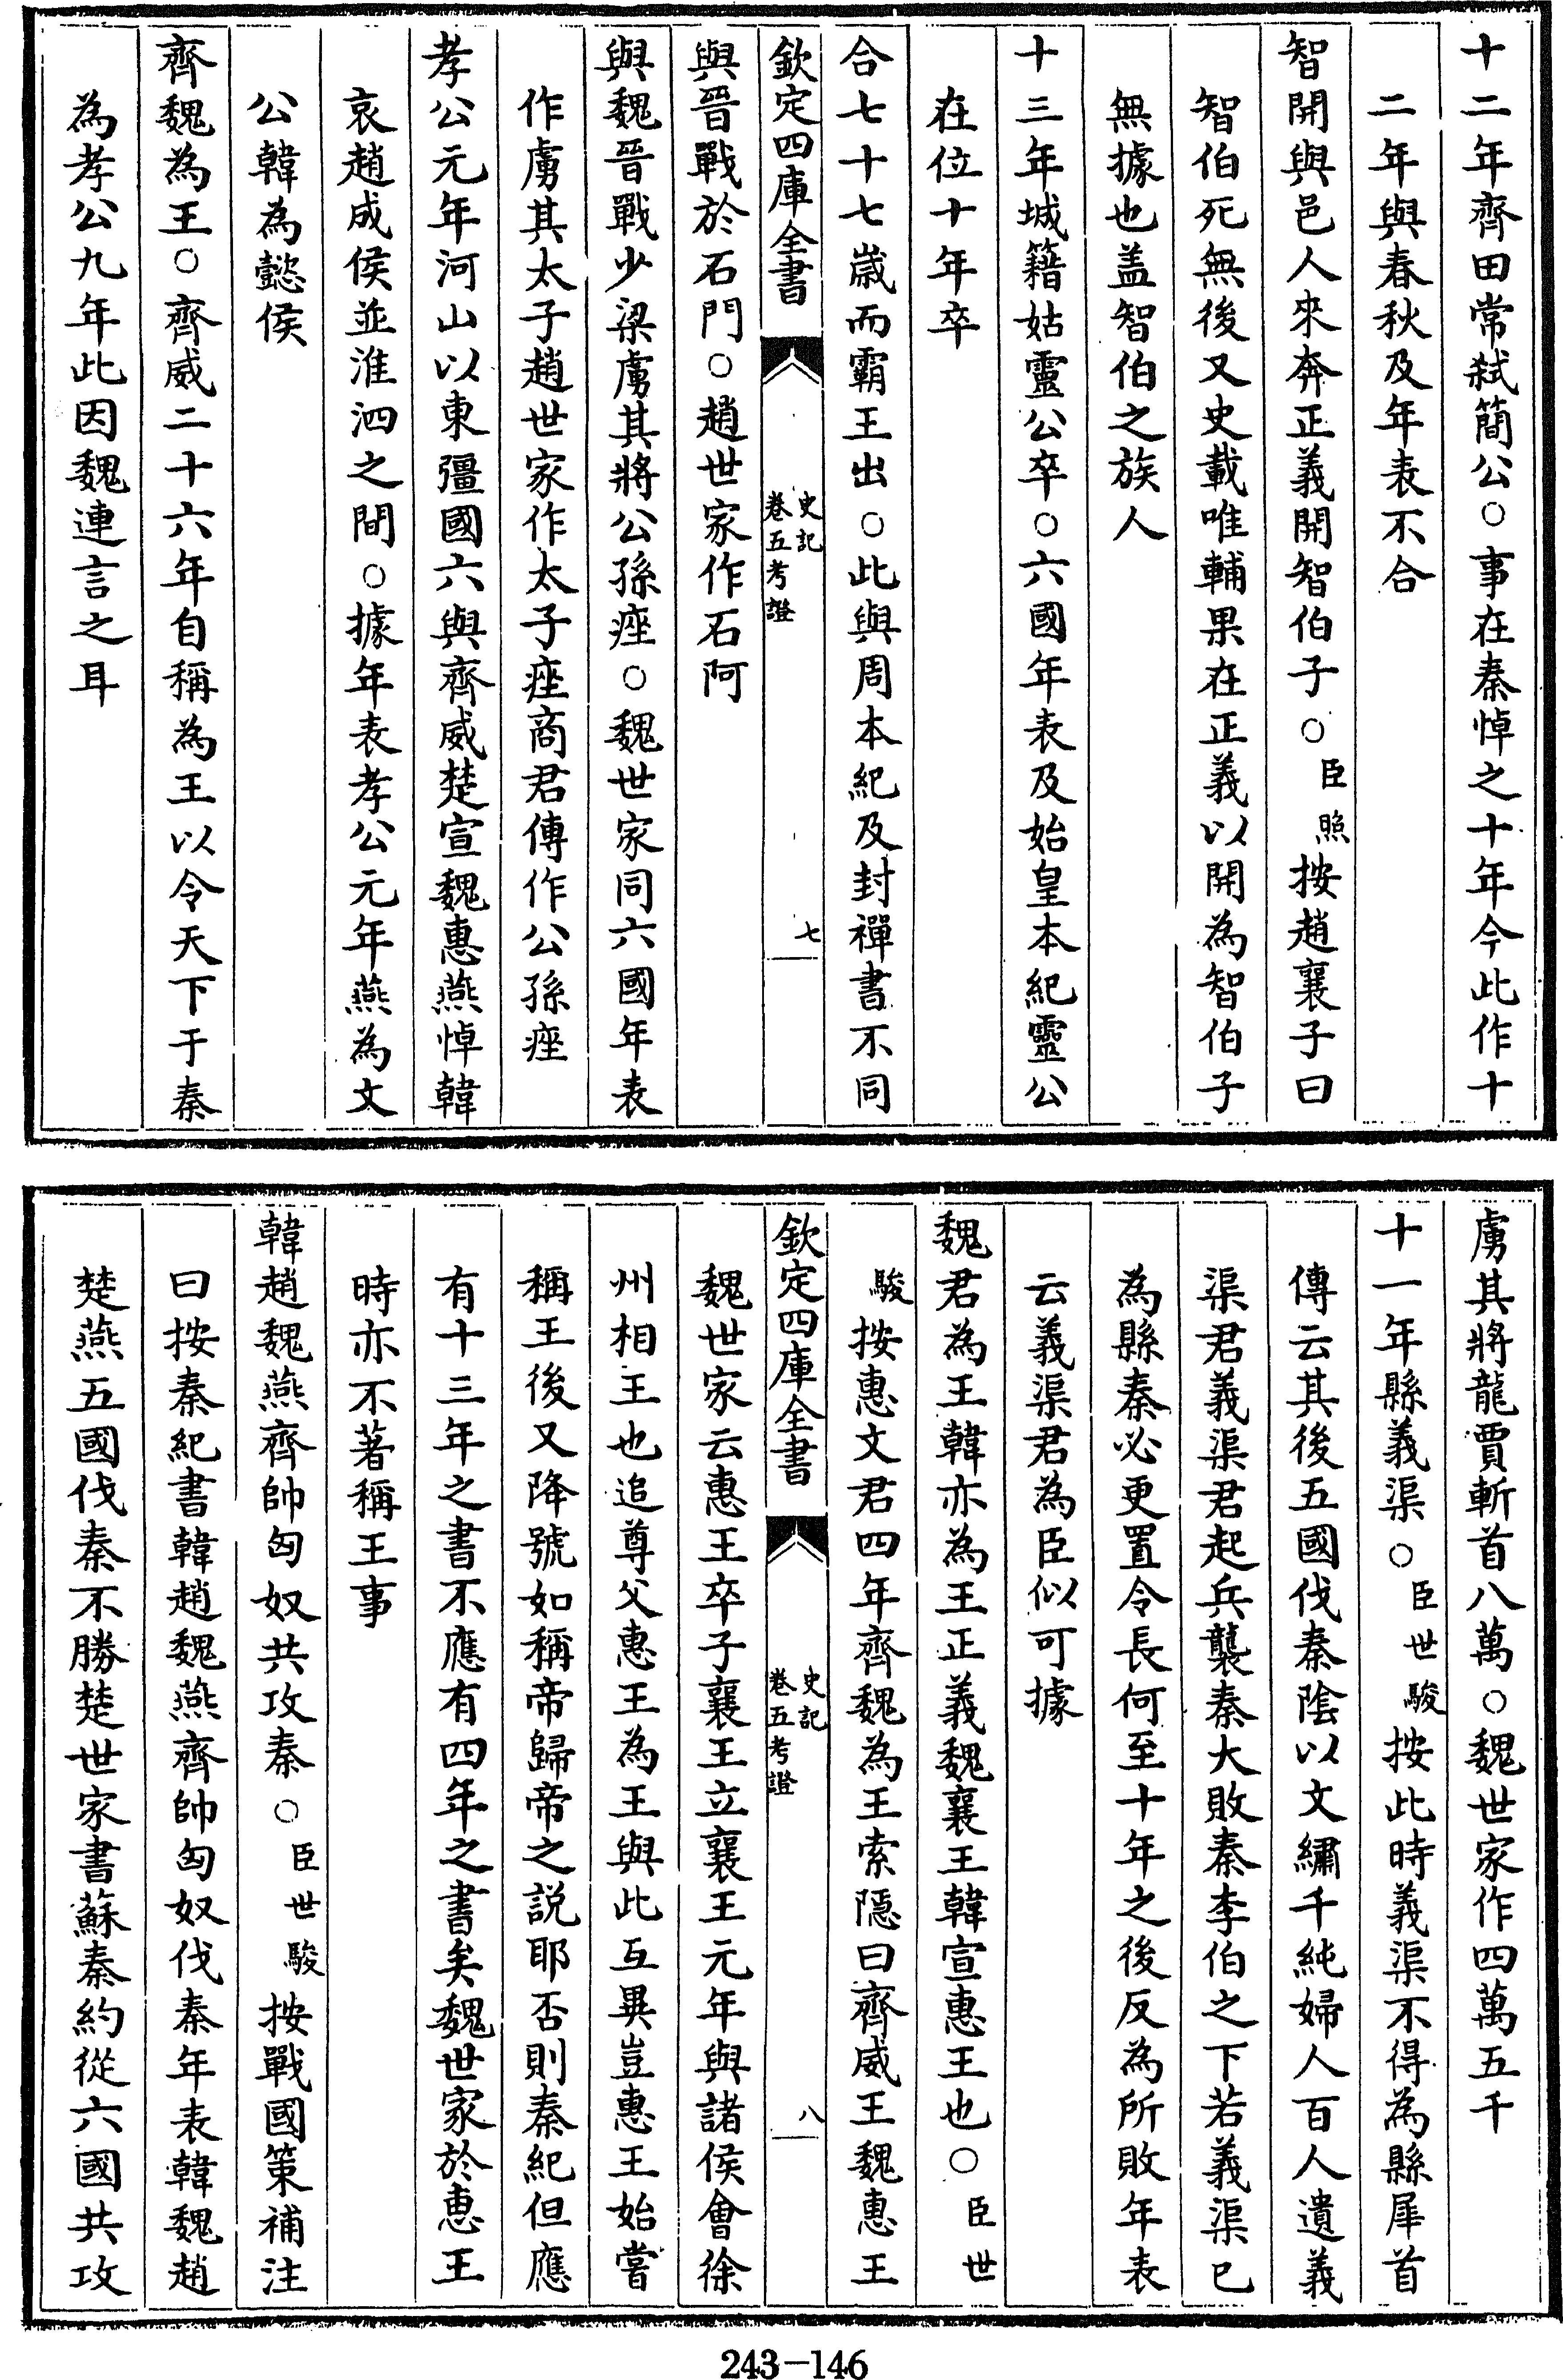 十二年齊田常弑簡公○事在秦悼之十年今此作十
二年與春秋及年表不合
智開與邑人來奔正義開智伯子○臣照按趙襄子曰
智伯死無後又史載唯輔果在正義以開為智伯子
無據也盖智伯之族人
十三年城籍姑靈公卒○六國年表及始皇本紀靈公
在位十年卒
合七十七歲而霸王出○此與周本紀及封禪書不同
欽定四庫全書
史記
卷五考證
七
與晉戰於石門○趙世家作石阿
與魏晉戰少梁虜其將公孫痤○魏世家同六國年表
作虜其太子趙世家作太子痤商君傳作公孫痤
孝公元年河山以東彊國六與齊威楚宣魏惠燕悼韓
哀趙成侯並淮泗之間○據年表孝公元年燕為文
公韓為懿侯
齊魏為王○齊威二十六年自稱為王以令天下于秦
為孝公九年此因魏連言之耳
虜其將龍賈斬首八萬○魏世家作四萬五千
十一年縣義渠○臣世駿按此時義渠不得為縣犀首
傳云其後五國伐秦陰以文繡千純婦人百人遺義
渠君義渠君起兵襲秦大敗秦李伯之下若義渠已
為縣秦必更置令長何至十年之後反為所敗年表
云義渠君為臣似可據
魏君為王韓亦為王正義魏襄王韓宣惠王也○臣世
駿按惠文君四年齊魏為王索隱曰齊威王魏惠王
欽定四庫全書
史記
卷五考證
八
魏世家云惠王卒子襄王立襄王元年與諸侯會徐
州相王也追尊父惠王為王與此互異豈惠王始嘗
稱王後又降號如稱帝歸帝之説耶否則秦紀但應
有十三年之書不應有四年之書矣魏世家於惠王
時亦不著稱王事
韓趙魏燕齊帥匈奴共攻秦○臣世駿按戰國策補注
曰按秦紀書韓趙魏燕齊帥匈奴伐秦年表韓魏趙
楚燕五國伐秦不勝楚世家書蘇秦約從六國共攻
243-146